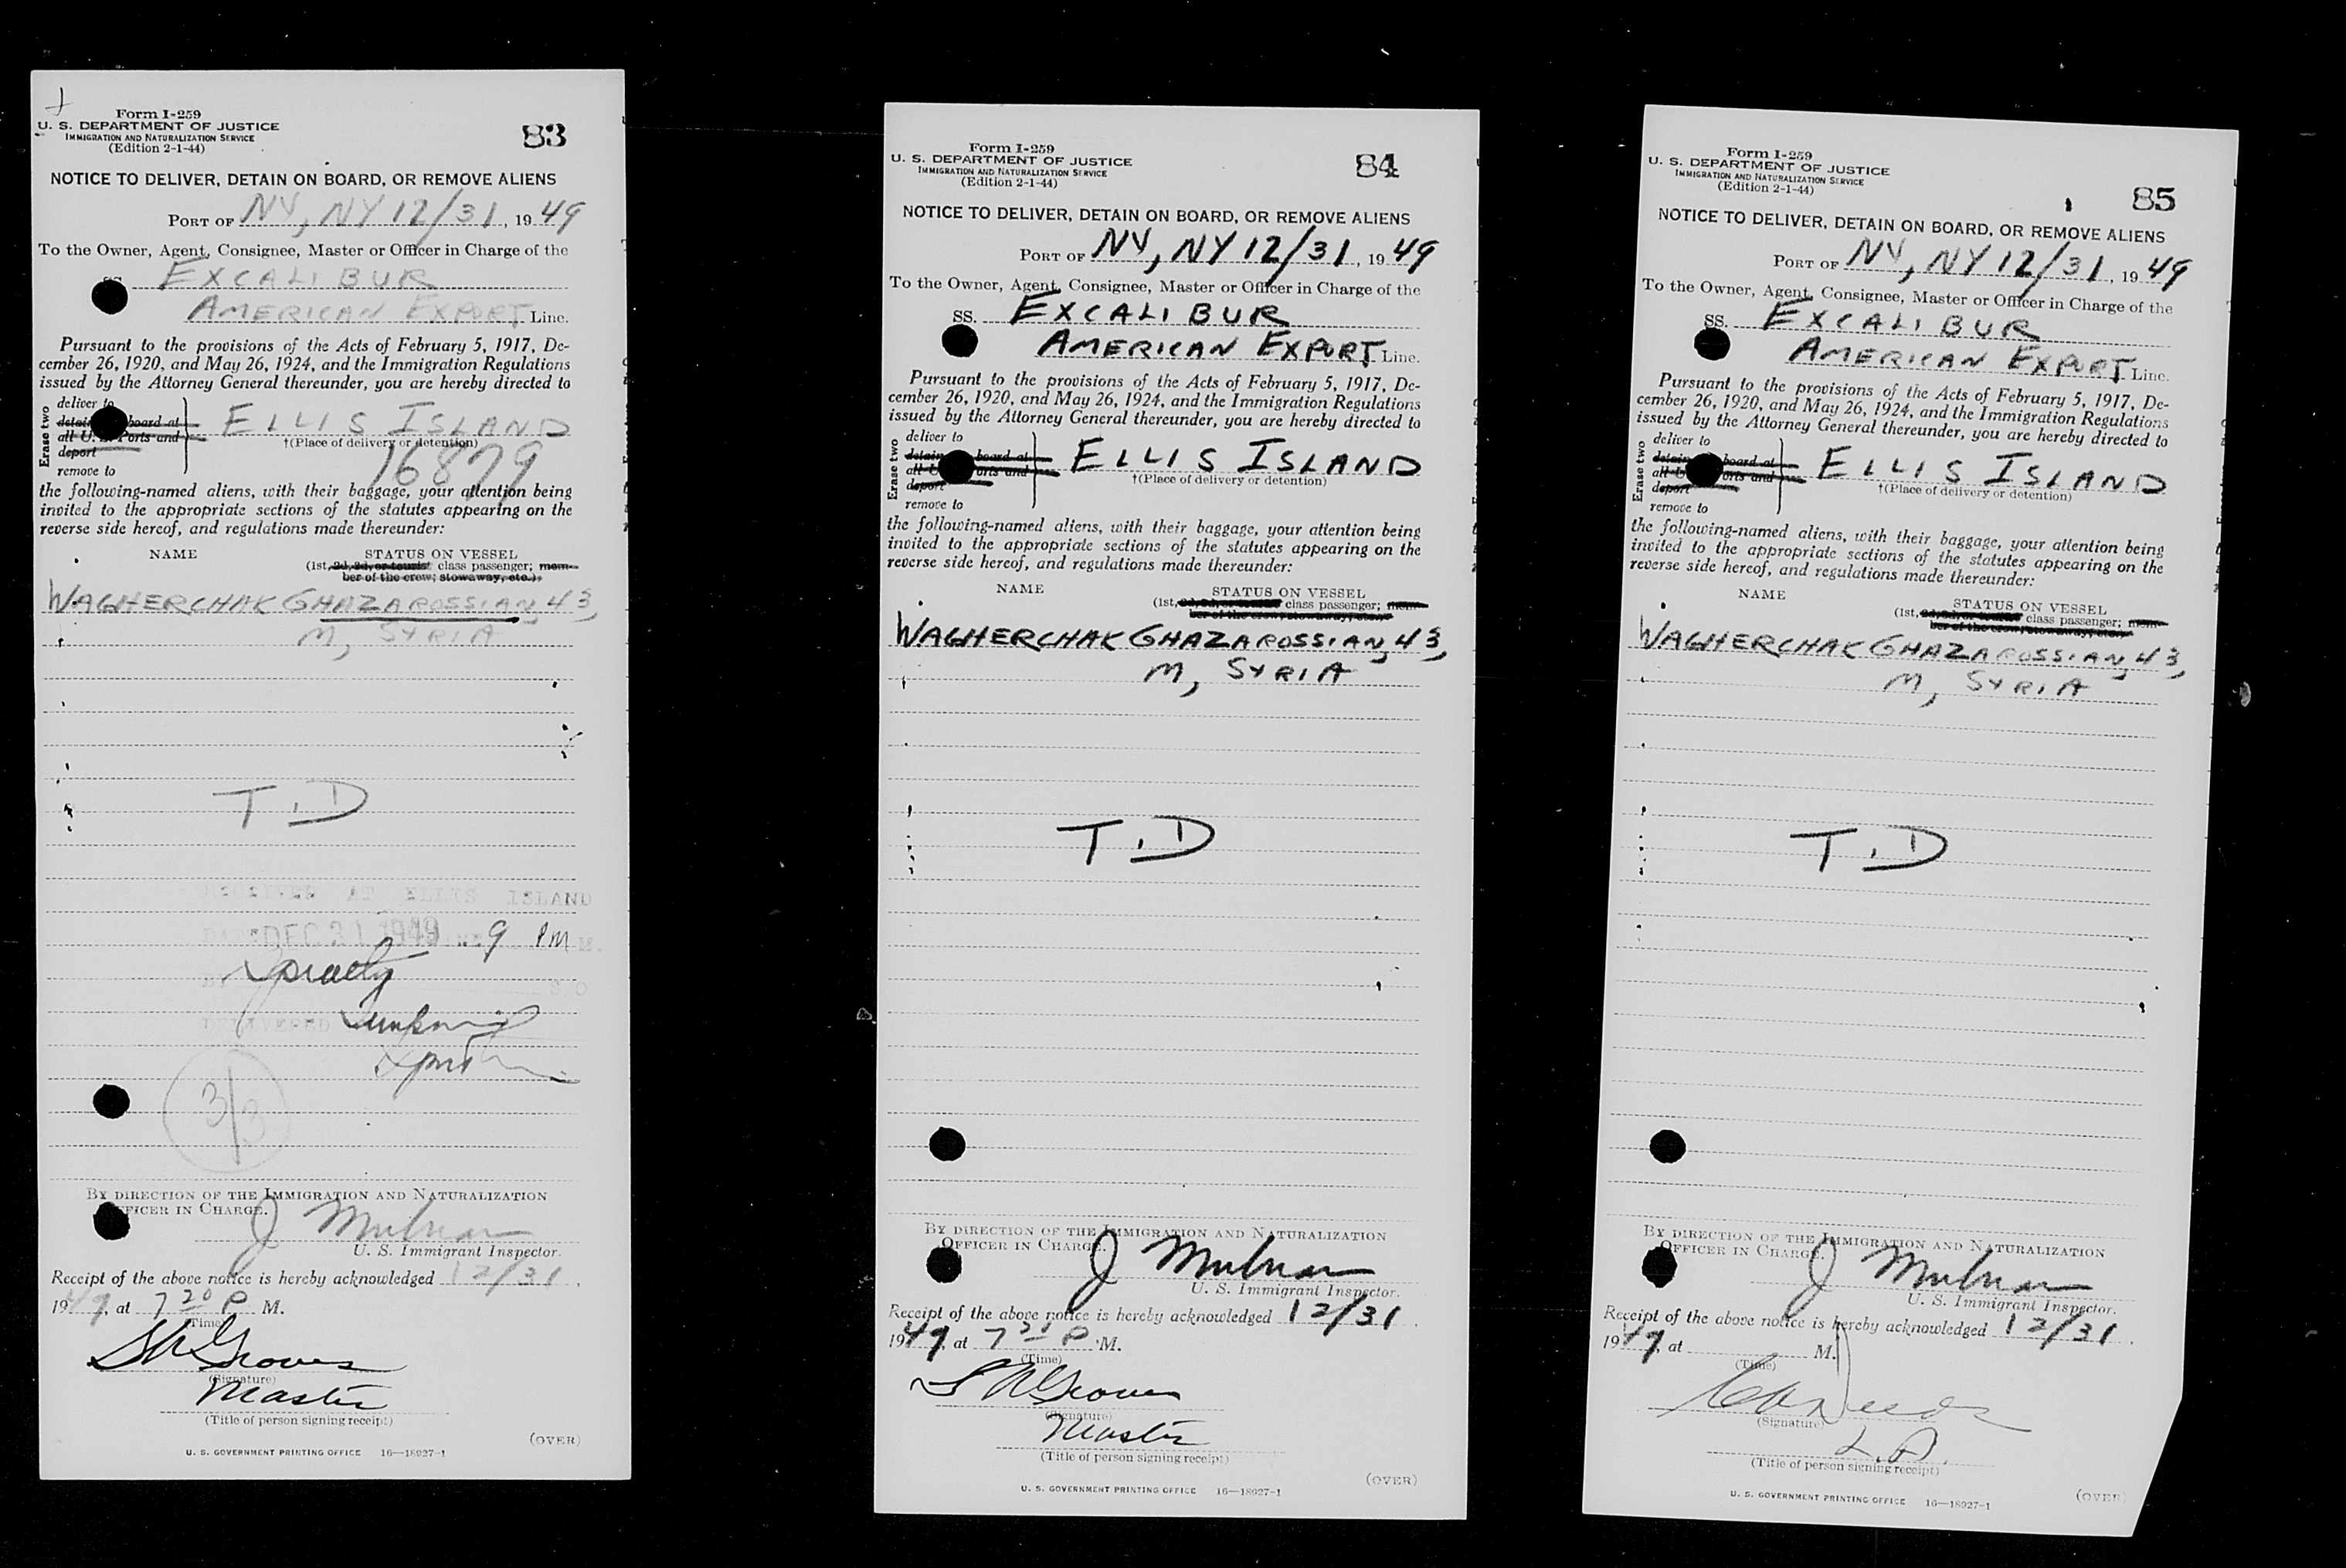 Form I-259
U. S. DEPARTMENT OF JUSTICE
IMMIGRATION AND NATURALIZATION SERVICE
(Edition 2-1-44)
83
NOTICE TO DELIVER, DETAIN ON BOARD, OR REMOVE ALIENS
PORT OF NY, NY 12/31, 1949
To the Owner, Agent, Consignee, Master or Officer in Charge of the
SS. EXCALIBUR
AMERICAN EXPORT Line.
Pursuant to the provisions of the Acts of February 5, 1917, De-
cember 26, 1920, and May 26, 1924, and the Immigration Regulations
issued by the Attorney General thereunder, you are hereby directed to
Erase two
deliver to
detain board at
all U. S. Ports and
deport
remove to
ELLIS ISLAND
†(Place of delivery or detention)
16879
the following-named aliens, with their baggage, your attention being
invited to the appropriate sections of the statutes appearing on the
reverse side hereof, and regulations made thereunder:
NAME STATUS ON VESSEL
(1st, 2d, 3d, or tourist class passenger; mem-
ber of the crew; stowaway, etc.)
WAGHERCHAK GHAZAROSSIAN, 43,
M, SYRIA
T.D
RECEIVED AT ELLIS ISLAND
DEC 31 1949 9 PM
DELIVERED
3/3
BY DIRECTION OF THE IMMIGRATION AND NATURALIZATION
OFFICER IN CHARGE.
J
U. S. Immigrant Inspector.
Receipt of the above notice is hereby acknowledged 12/31,
1949, at 7 20 P. M.
(Time)
(Signature)
Master
(Title of person signing receipt)
(OVER)
U. S. GOVERNMENT PRINTING OFFICE 16—18927-1
Form I-259
U. S. DEPARTMENT OF JUSTICE
IMMIGRATION AND NATURALIZATION SERVICE
(Edition 2-1-44)
84
NOTICE TO DELIVER, DETAIN ON BOARD, OR REMOVE ALIENS
PORT OF NY, NY 12/31, 1949
To the Owner, Agent, Consignee, Master or Officer in Charge of the
SS. EXCALIBUR
AMERICAN EXPORT Line.
Pursuant to the provisions of the Acts of February 5, 1917, De-
cember 26, 1920, and May 26, 1924, and the Immigration Regulations
issued by the Attorney General thereunder, you are hereby directed to
Erase two
deliver to
detain board at
all U Ports and
deport
remove to
ELLIS ISLAND
†(Place of delivery or detention)
the following-named aliens, with their baggage, your attention being
invited to the appropriate sections of the statutes appearing on the
reverse side hereof, and regulations made thereunder:
NAME STATUS ON VESSEL
(1st, class passenger; mem-
ber of the crew; stowaway, etc.)
WAGHERCHAK GHAZAROSSIAN, 43,
M, SYRIA
T.D
BY DIRECTION OF THE IMMIGRATION AND NATURALIZATION
OFFICER IN CHARGE.
J
U. S. Immigrant Inspector.
Receipt of the above notice is hereby acknowledged 12/31,
1949, at 7 P. M.
(Time)
(Signature)
Master
(Title of person signing receipt)
(OVER)
U. S. GOVERNMENT PRINTING OFFICE 16—18927-1
Form I-259
U. S. DEPARTMENT OF JUSTICE
IMMIGRATION AND NATURALIZATION SERVICE
(Edition 2-1-44)
85
NOTICE TO DELIVER, DETAIN ON BOARD, OR REMOVE ALIENS
PORT OF NY, NY 12/31, 1949
To the Owner, Agent, Consignee, Master or Officer in Charge of the
SS. EXCALIBUR
AMERICAN EXPORT Line.
Pursuant to the provisions of the Acts of February 5, 1917, De-
cember 26, 1920, and May 26, 1924, and the Immigration Regulations
issued by the Attorney General thereunder, you are hereby directed to
Erase two
deliver to
detain board at
all U Ports and
deport
remove to
ELLIS ISLAND
†(Place of delivery or detention)
the following-named aliens, with their baggage, your attention being
invited to the appropriate sections of the statutes appearing on the
reverse side hereof, and regulations made thereunder:
NAME STATUS ON VESSEL
(1st, class passenger; mem-
ber of the crew; stowaway, etc.)
WAGHERCHAK GHAZAROSSIAN, 43,
M, SYRIA
T.D
BY DIRECTION OF THE IMMIGRATION AND NATURALIZATION
OFFICER IN CHARGE.
J
U. S. Immigrant Inspector.
Receipt of the above notice is hereby acknowledged 12/31,
1949, at M.
(Time)
(Signature)
(Title of person signing receipt)
(OVER)
U. S. GOVERNMENT PRINTING OFFICE 16—18927-1